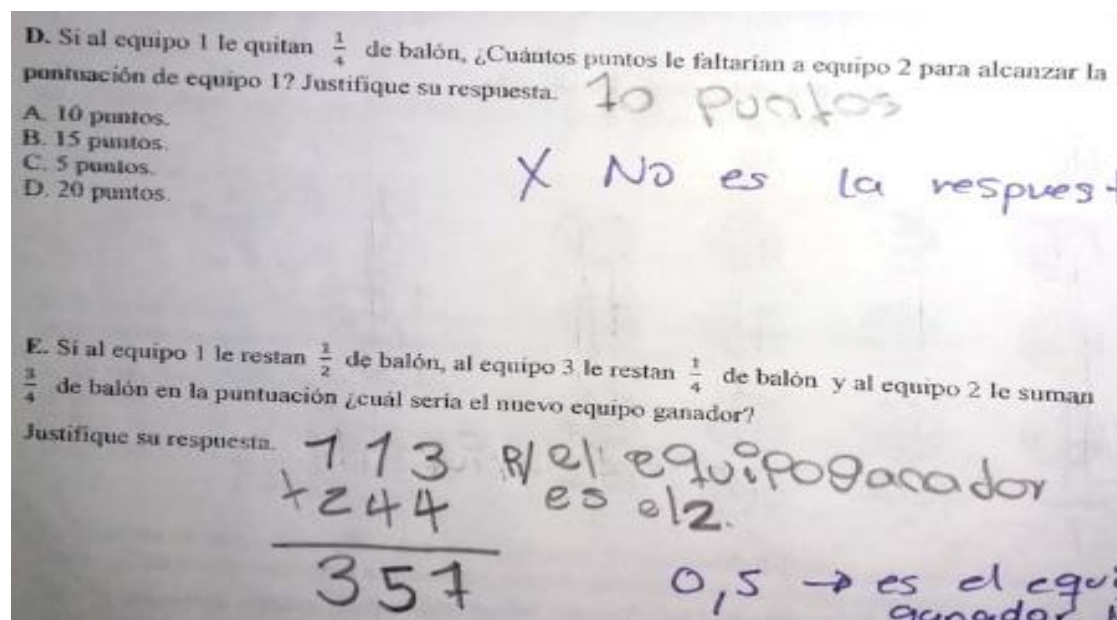 D. Si al equipo 1 le quitan 1/4 de balón, ¿Cuántos puntos le faltarían a equipo 2 para alcanzar la
puntuación de equipo 1? Justifique su respuesta.
10 puntos
A. 10 puntos.
B. 15 puntos.
C. 5 puntos.
D. 20 puntos.
X No es la respuest
E. Si al equipo 1 le restan 1/2 de balón, al equipo 3 le restan 1/4 de balón y al equipo 2 le suman
3/4 de balón en la puntuación ¿cuál sería el nuevo equipo ganador?
Justifique su respuesta.
113
+244
357
R/ el equipo ganador
es el 2.
0,5 → es el equi
ganador